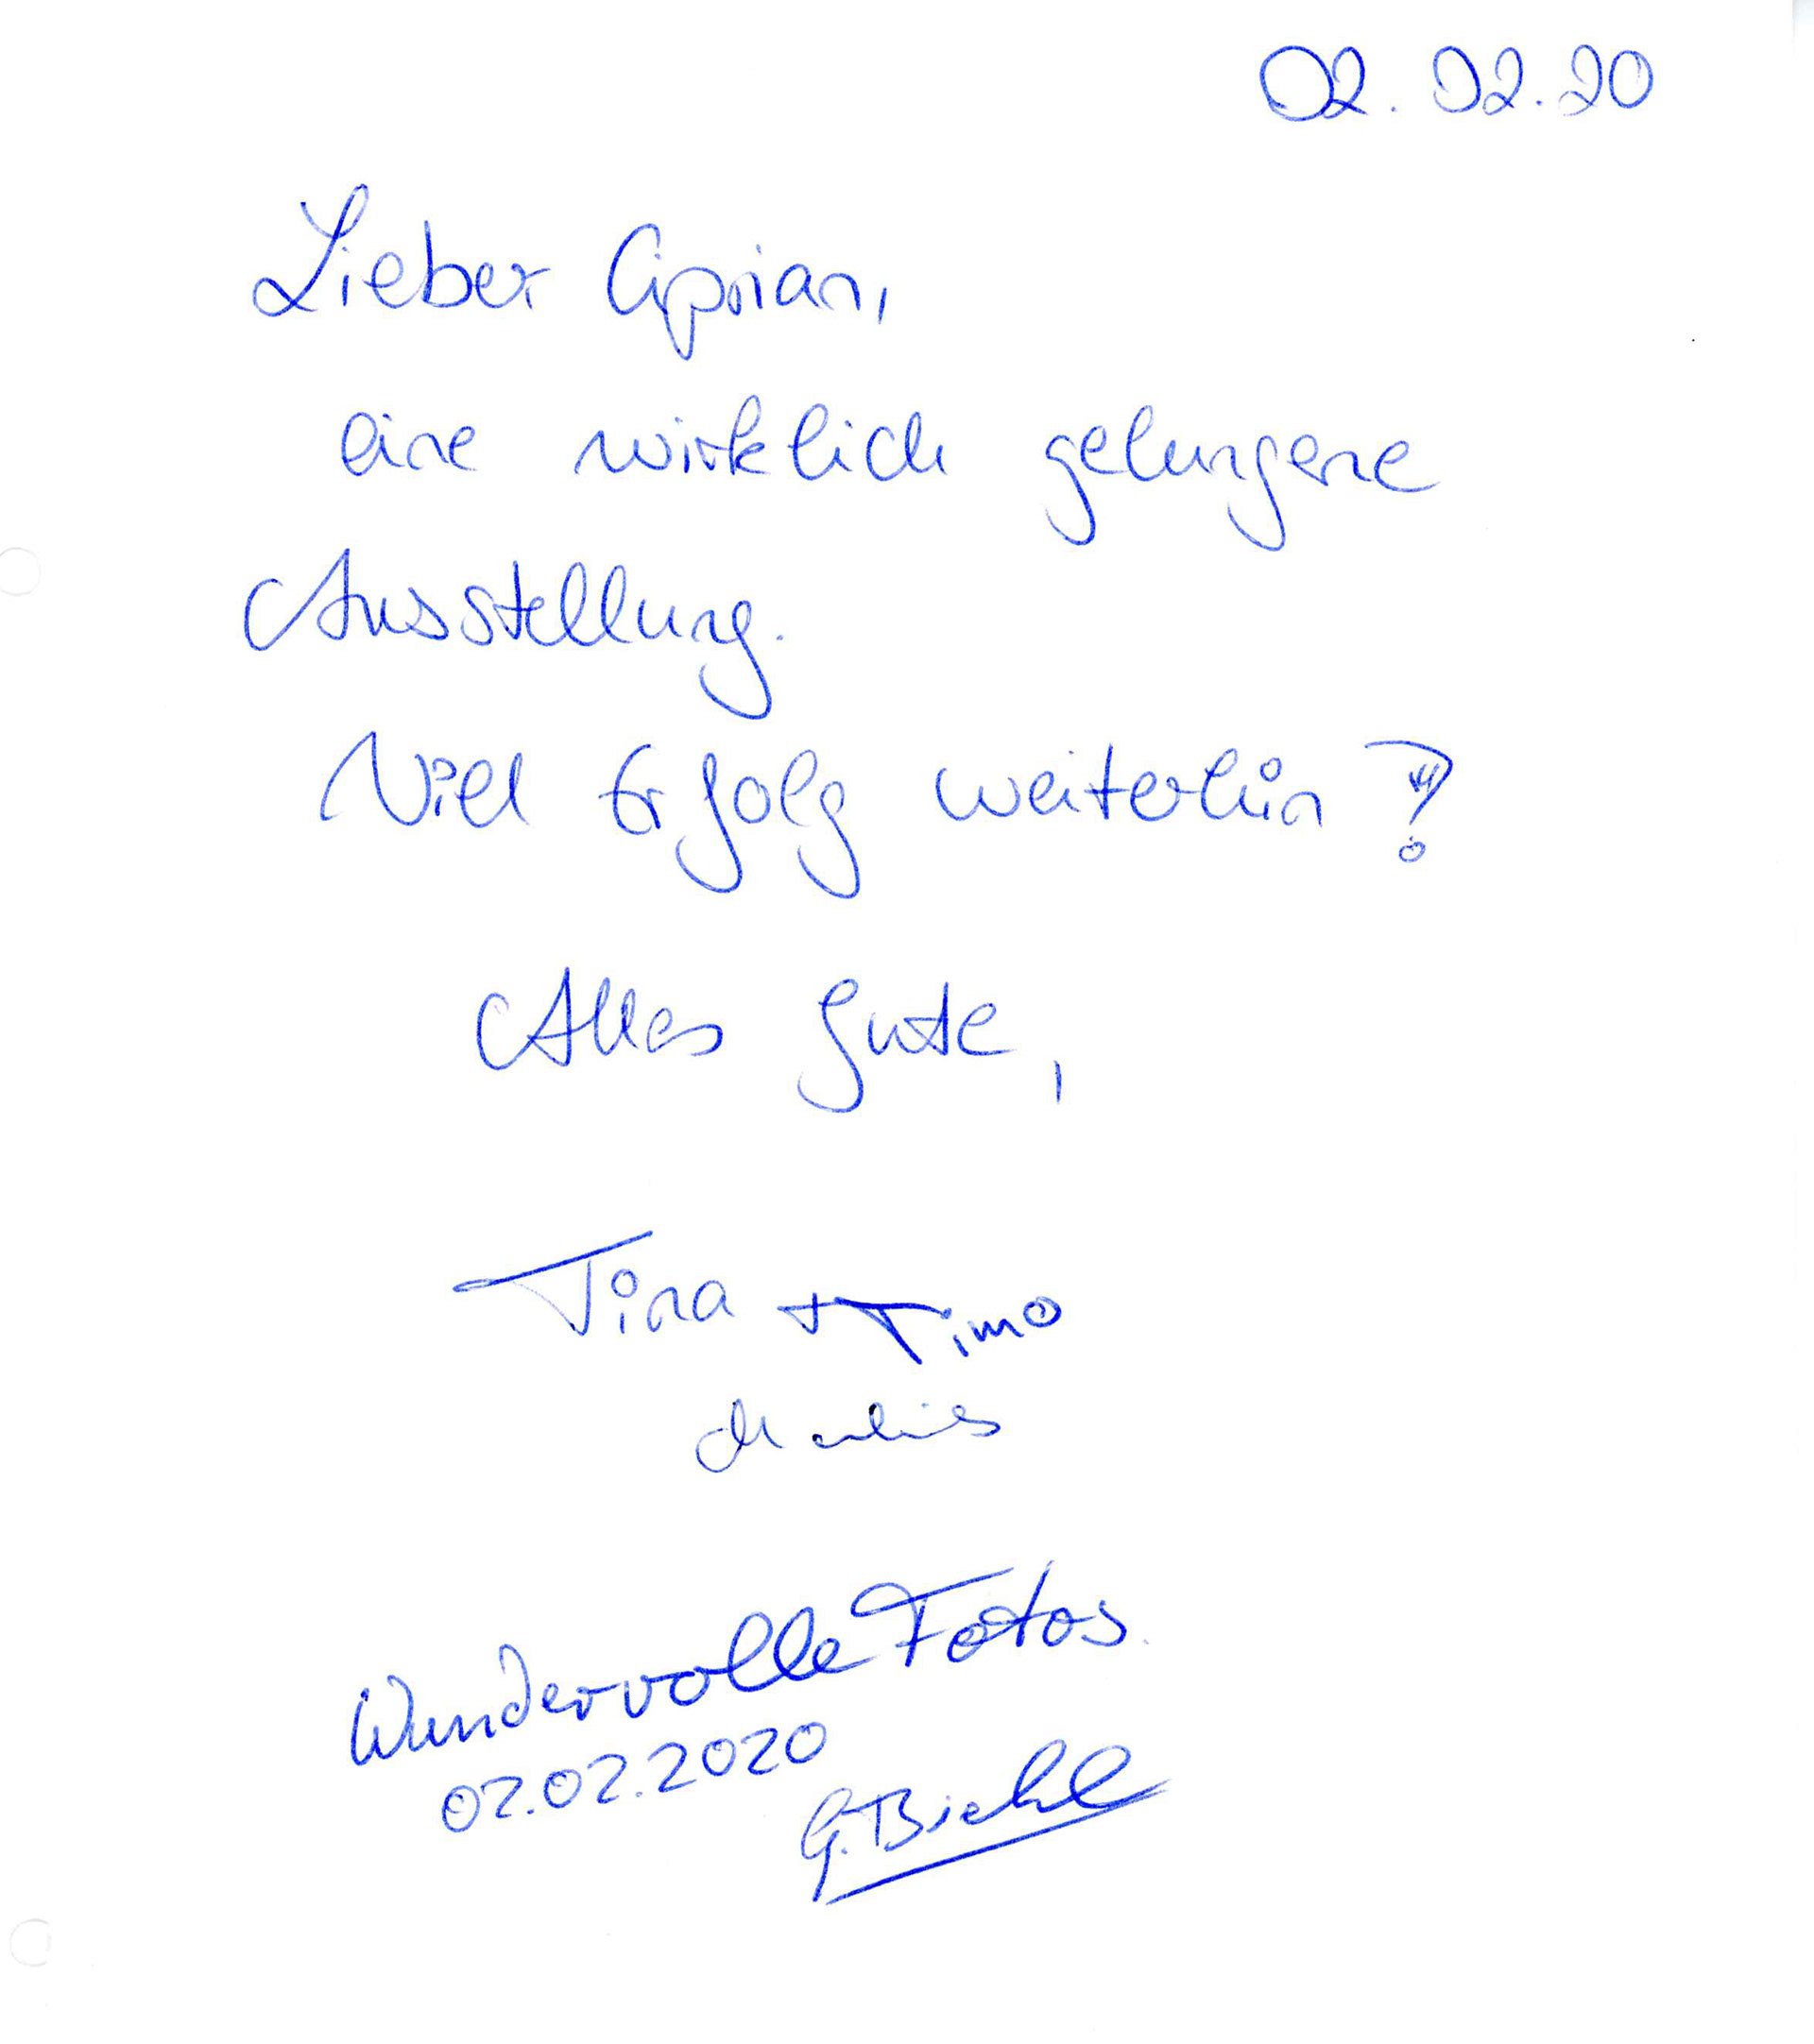 02.02.20
Lieber Ciprian,
eine wirklich gelungene
Ausstellung.
Viel Erfolg weiterhin!
Alles Gute,
Tina + Timo
Wundervolle Fotos.
02.02.2020
G. Biehl